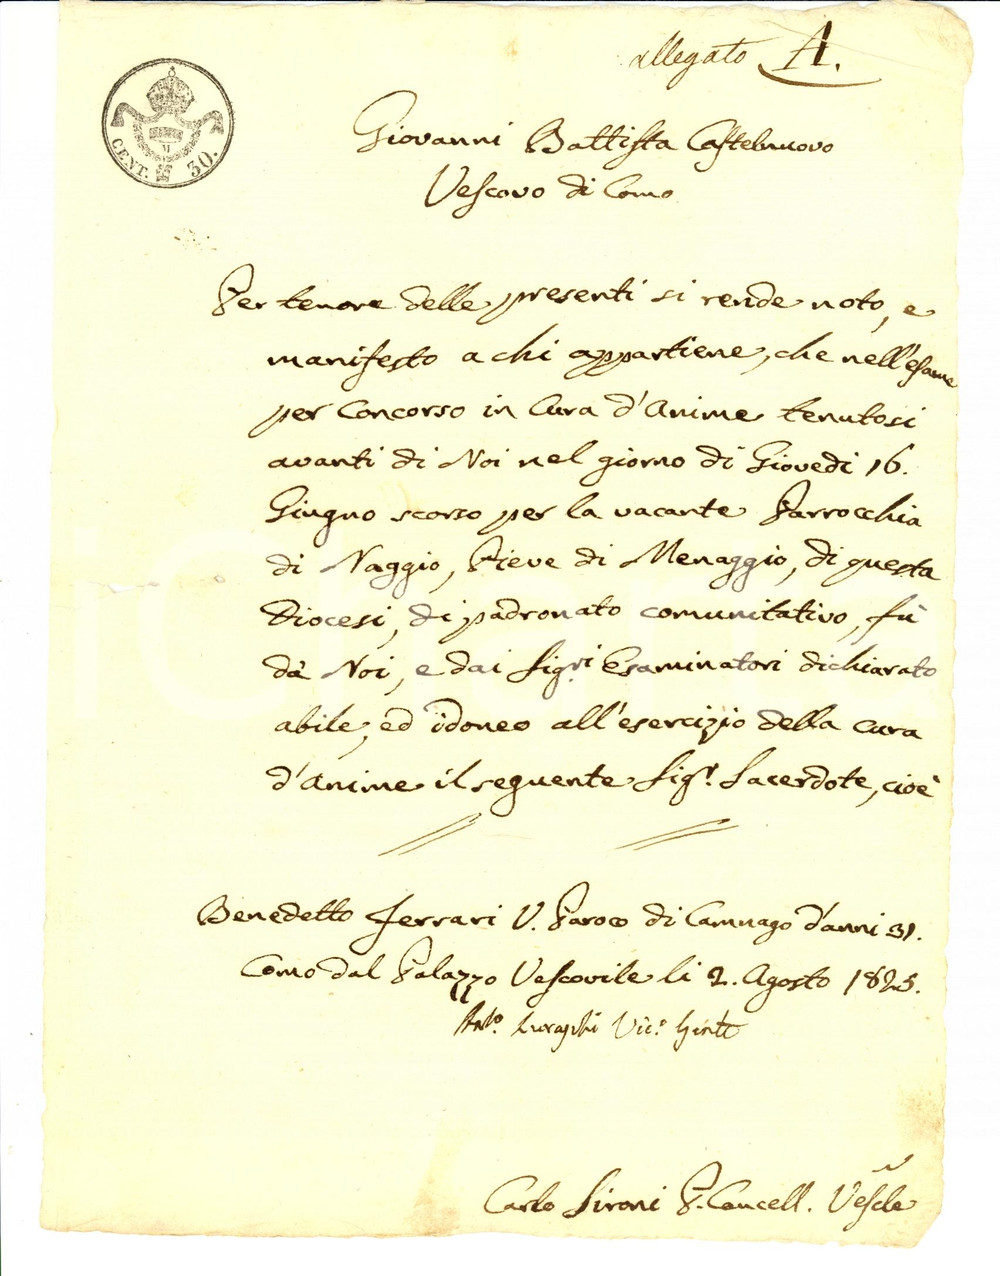 allegato A.
CENT. 30.
Giovanni Battista Castelnuovo
Vescovo di Como
Per tenore delle presenti si rende noto, e
manifesto a chi appartiene, che nell'esame
per Concorso in Cura d'Anime tenutosi
avanti di Noi nel giorno di Giovedi 16.
Giugno scorso per la vacante Parrocchia
di Naggio, Pieve di Menaggio, di questa
Diocesi, di padronato comunitativo, fù
dà Noi, e dai Sigri Esaminatori dichiarato
abile, ed idoneo all'esercizio della cura
d'Anime il seguente Sigr. Sacerdote, cioè
Benedetto Ferrari V. Paroco di Camnago d'anni 31.
Como dal Palazzo Vescovile li 2. Agosto 1825.
Anto. Luraschi Vic.o Gen.le
Carlo Sironi P. Cancell. Vescle